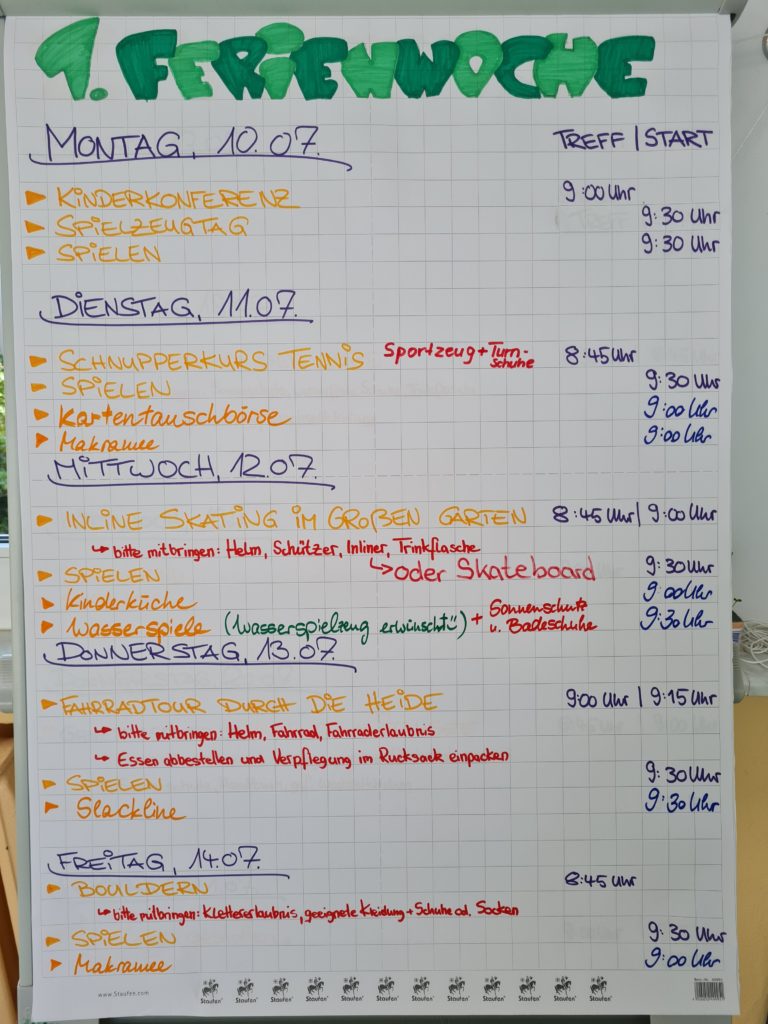 1. FERIENWOCHE
MONTAG, 10.07. TREFF | START
► KINDERKONFERENZ 9:00 Uhr
► SPIELZEUGTAG 9:30 Uhr
► SPIELEN 9:30 Uhr
DIENSTAG, 11.07.
► SCHNUPPERKURS TENNIS Sportzeug + Turn-schuhe 8:45 Uhr
► SPIELEN 9:30 Uhr
► Kartentauschbörse 9:00 Uhr
► Makramee 9:00 Uhr
MITTWOCH, 12.07.
► INLINE SKATING IM GROßEN GARTEN 8:45 Uhr | 9:00 Uhr
↳ bitte mitbringen: Helm, Schützer, Inliner, Trinkflasche
↳ oder Skateboard
► SPIELEN 9:30 Uhr
► Kinderküche 9:00 Uhr
► Wasserspiele (Wasserspielzeug erwünscht ü) + Sonnenschutz u. Badeschuhe 9:30 Uhr
DONNERSTAG, 13.07.
► FAHRRADTOUR DURCH DIE HEIDE 9:00 Uhr | 9:15 Uhr
↳ bitte mitbringen: Helm, Fahrrad, Fahrraderlaubnis
↳ Essen abbestellen und Verpflegung im Rucksack einpacken
► SPIELEN 9:30 Uhr
► Slackline 9:30 Uhr
FREITAG, 14.07.
► BOULDERN 8:45 Uhr
↳ bitte mitbringen: Klettererlaubnis, geeignete Kleidung + Schuhe od. Socken
► SPIELEN 9:30 Uhr
► Makramee 9:00 Uhr
www.Staufen.com Staufen Staufen Staufen Staufen Staufen Staufen Staufen Staufen Staufen Staufen Staufen Staufen